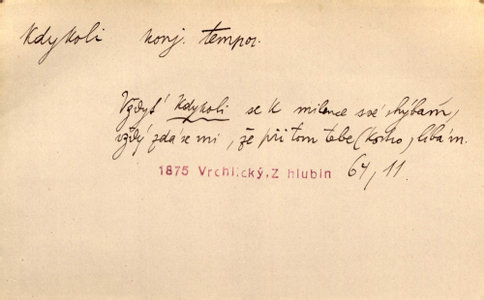 Kdykoli konj. tempor.
Vždyť kdykoli se k milence své shýbám,
vždy zdá se mi, že při tom tebe (kosho) líbám.
1875 Vrchlický, Z hlubin 64, 11.